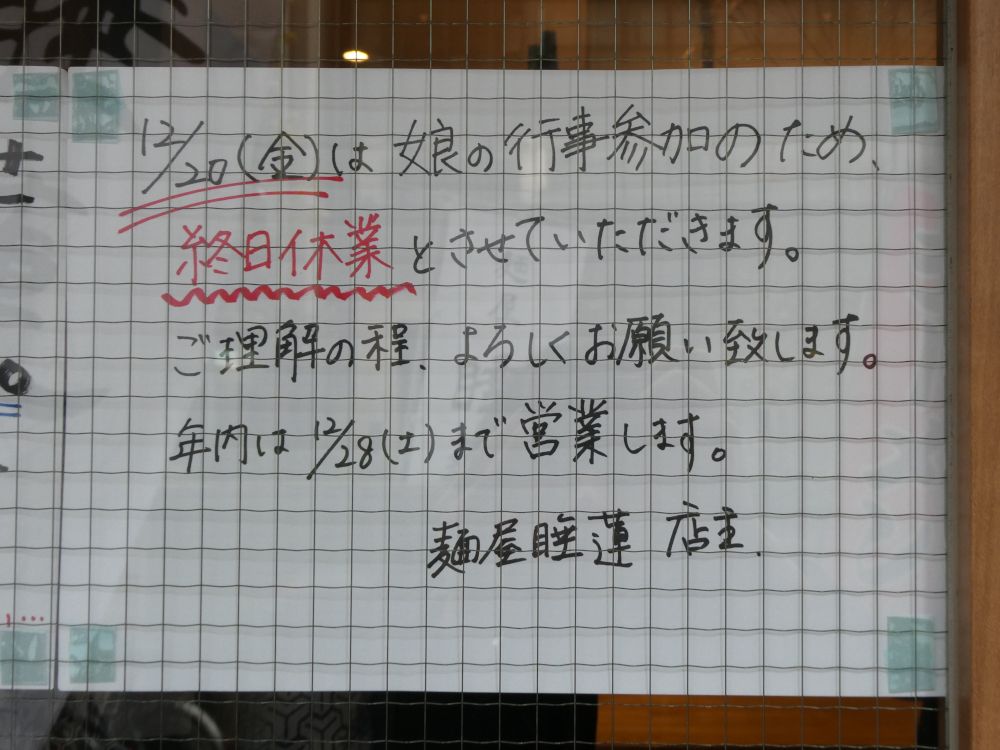 12/20(金)は 娘の行事参加のため、
終日休業とさせていただきます。
ご理解の程、よろしくお願い致します。
年内は 12/28(土)まで営業します。
麺屋睡蓮 店主.